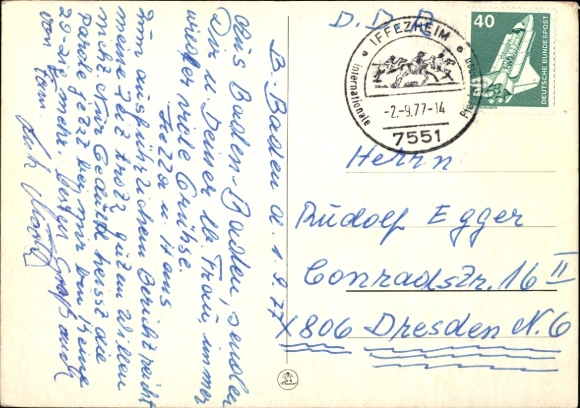 B.-Baden d. 1.9.77
Aus Baden-Baden, senden
Dir u Deiner lb. Frau, immer
wieder viele Grühse.
u Hans
Zum ausführlichen Bericht reicht
meine Zeit trotz guten Willen
nicht Nur Gedult heisst die
Parole jetzt bei mir
20-21
von
Besten Gruß auch
D.D.R.
IFFEZHEIM
Internationale
-2.-9.77-14
7551
40
DEUTSCHE BUNDESPOST
Herrn
Rudolf Egger
Conradstr. 16 II
X806 Dresden N. 6